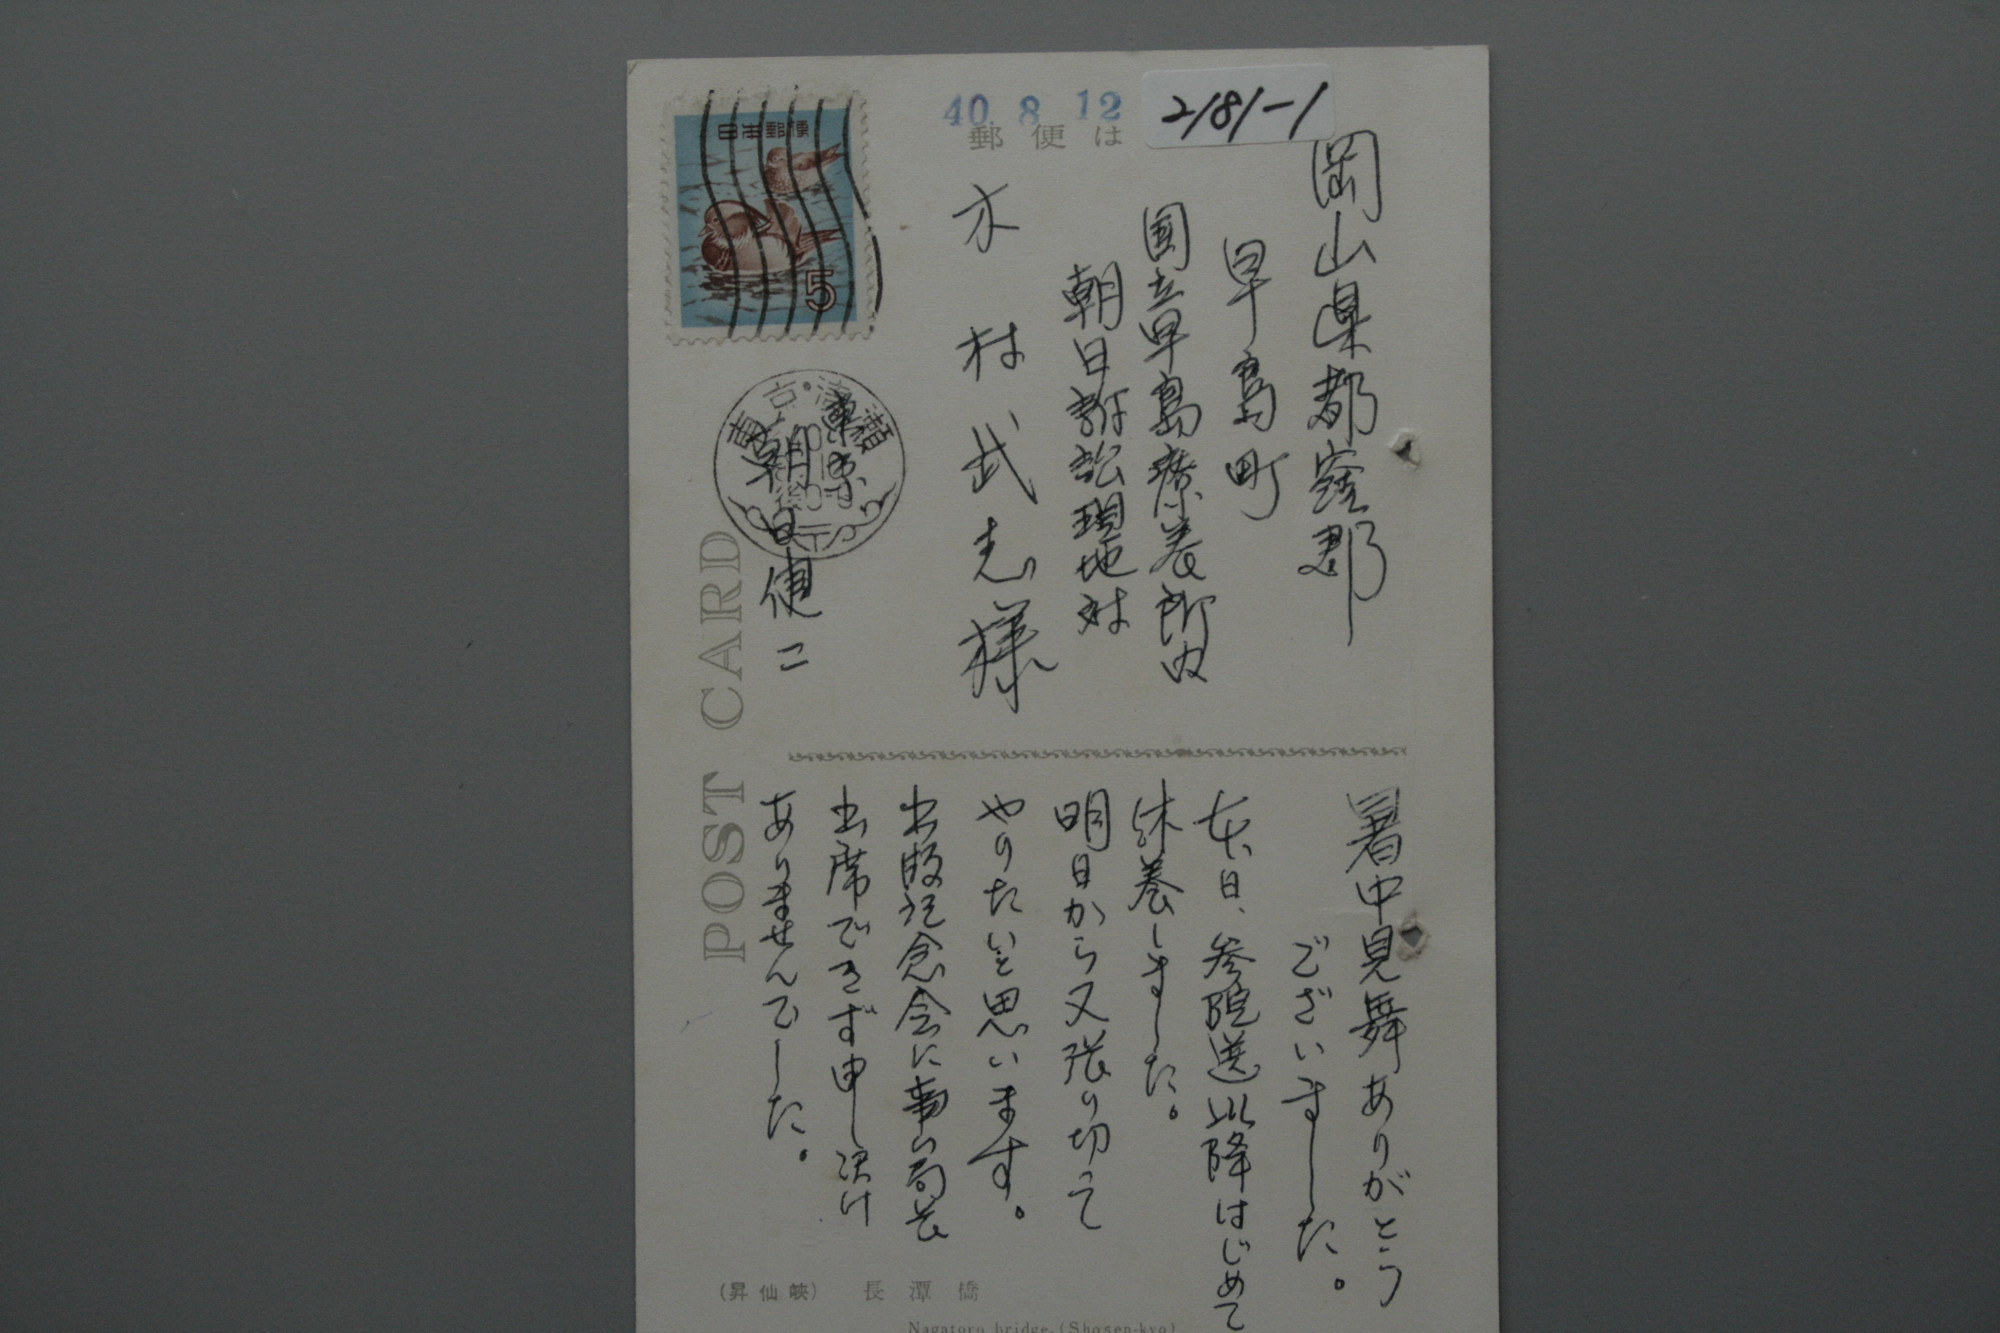 40 8 12
2181-1
郵便は
日本郵便
5
岡山県都窪郡
早島町
国立早島療養所内
朝日訴訟現地対
木村武志様
東京・清瀬
東京
朝日健二
POST CARD
暑中見舞ありがとう
ございました。
本日、参院選以降はじめて
休養しました。
明日から又張り切って
やりたいと思います。
出版記念会に事ム局長
出席できず申し訳け
ありませんでした。
(昇仙峡) 長潭橋
Nagatoro bridge.(Shosen-kyo)